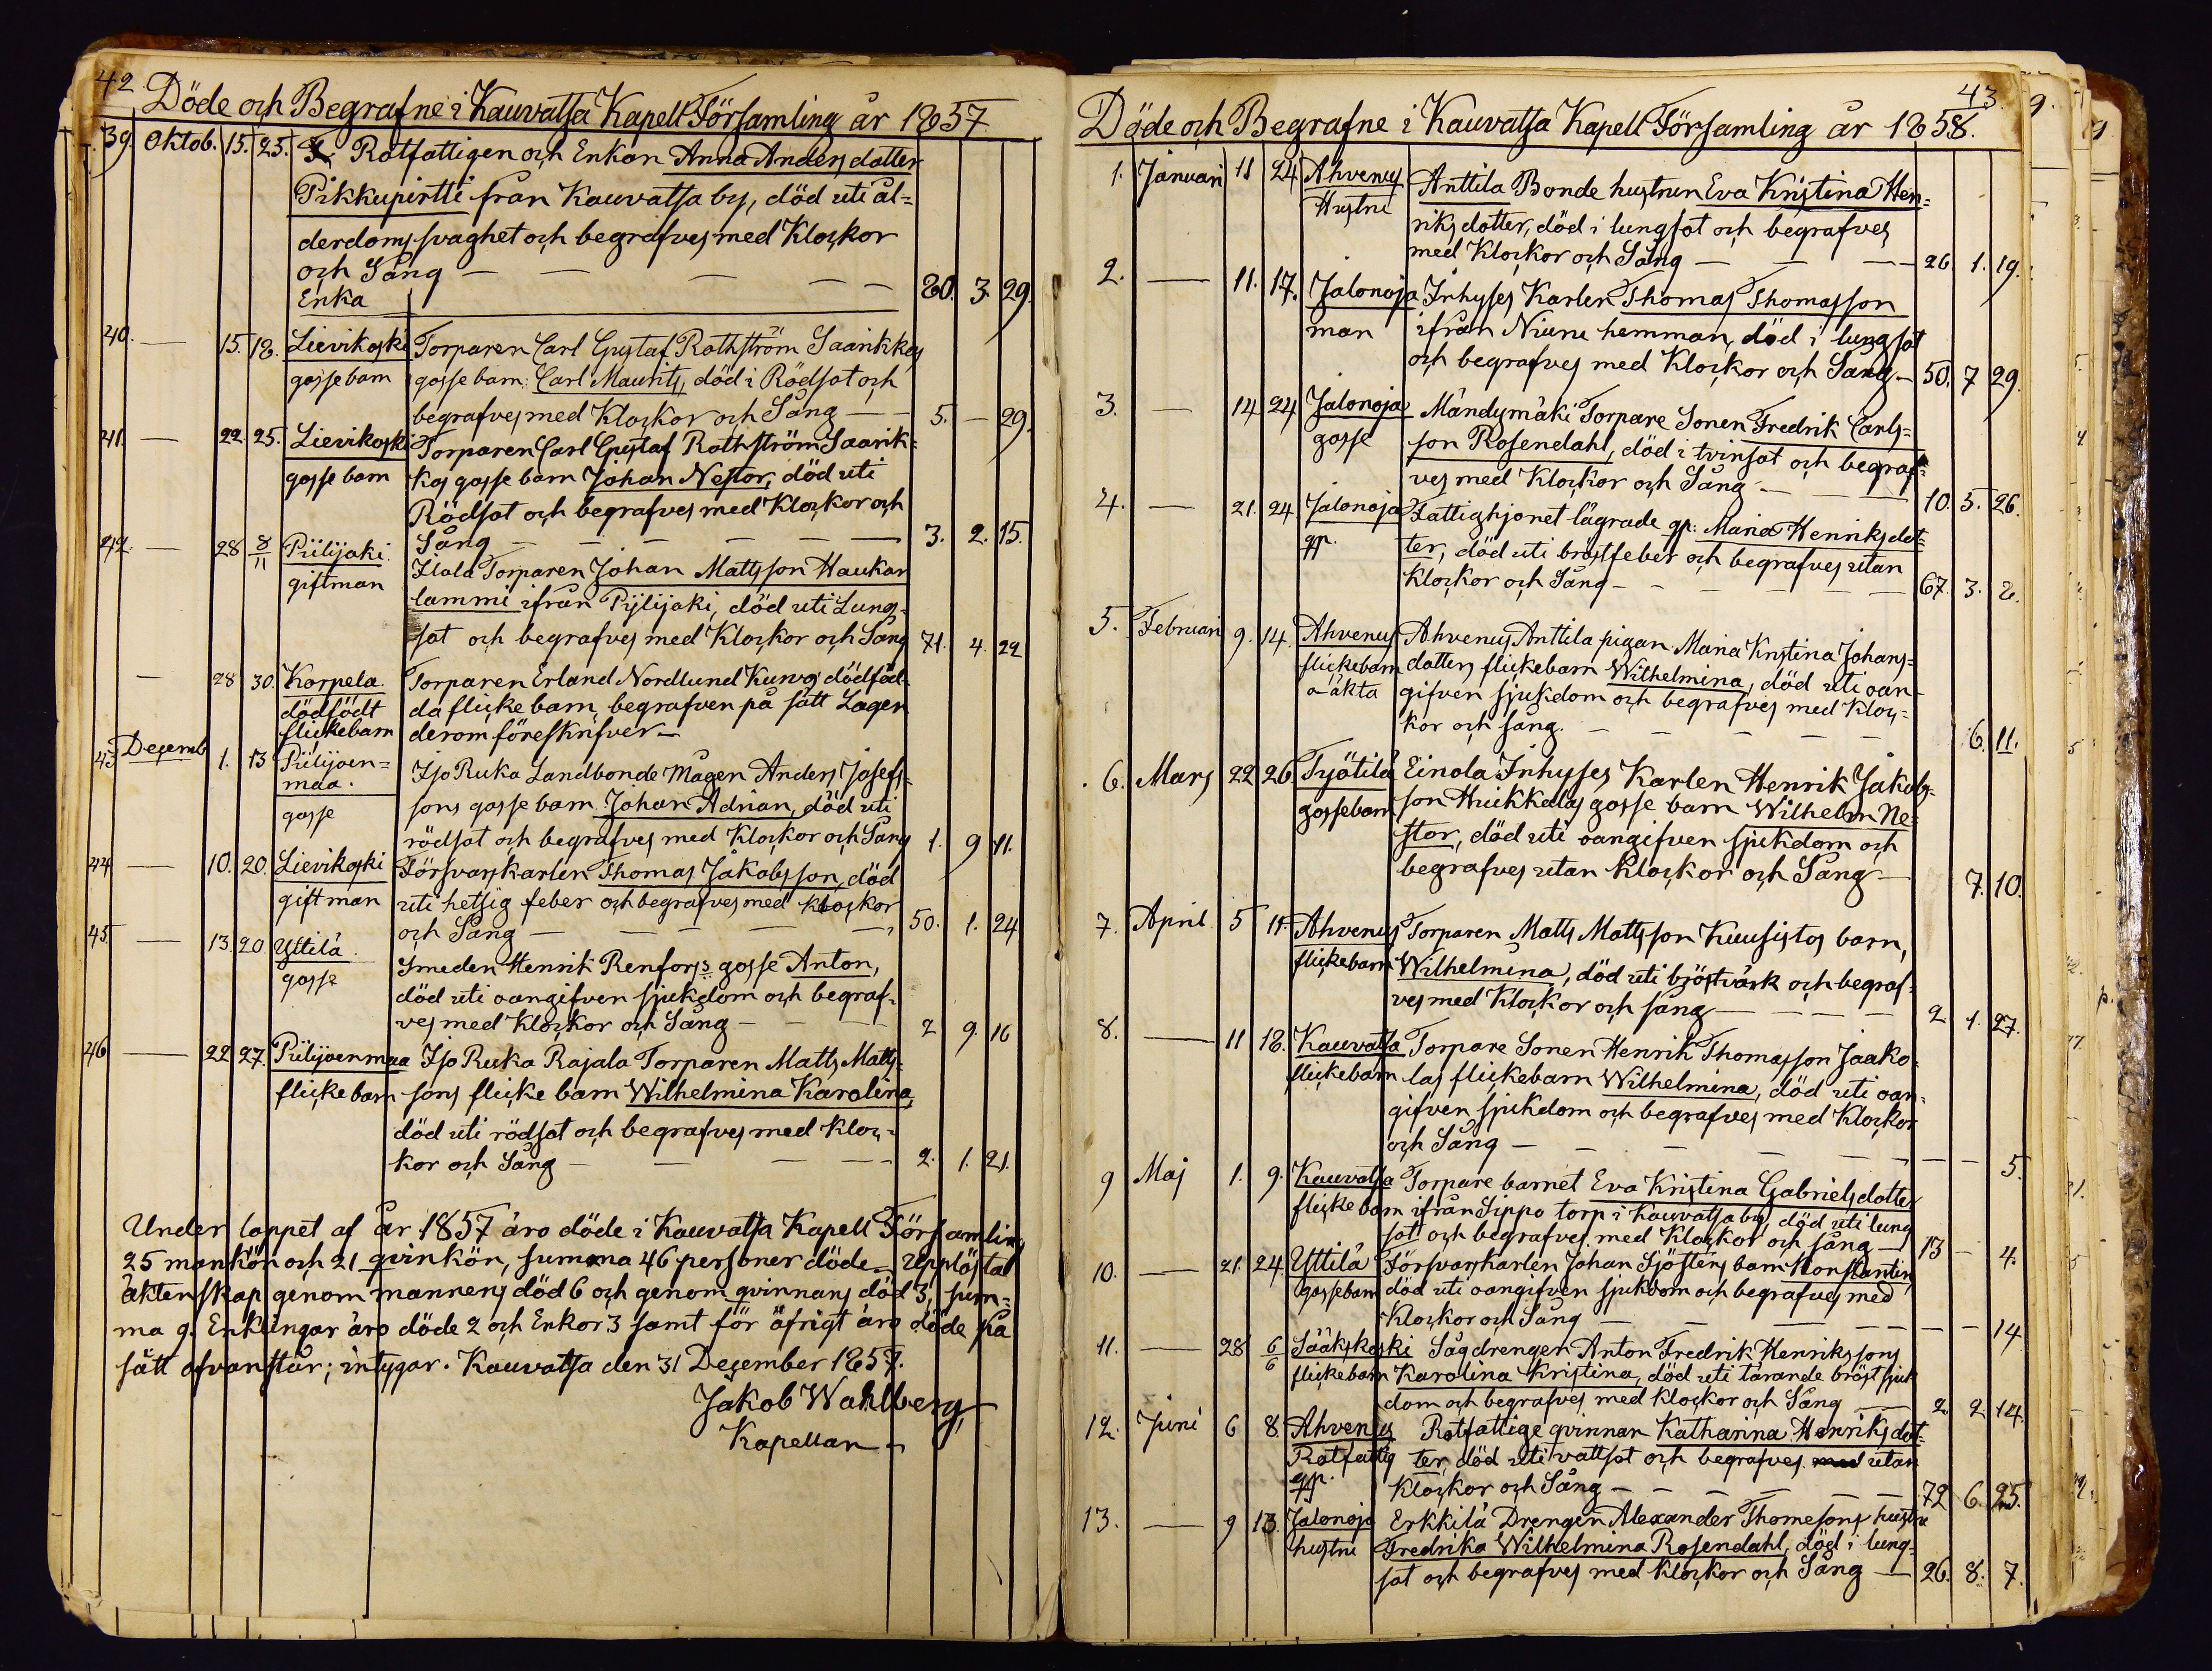 42.
Döde och Begrafne i Kauvatsa Kapell Församling år 1857
39. Oktob. 15. 25. Rotfattigen och Enkan Anna Anders dotter
Pikkupirtti från Kauvatsa by, död uti ål=
derdoms svaghet och begrafves med Klockor
och Sång — — — — 80. 3. 29.
Enka
40. — 15. 18. Lievikoski Torparen Carl Gustaf Rothström Saarikkos
gossebarn gosse barn: Carl Maurits, död i Rödsot och
begrafves med Klockor och Sång — — 5. — 29.
41. — 22. 25. Lievikoski Torparen Carl Gustaf Rothström Saarik=
gosse barn kos gosse barn Johan Nestor, död uti
Rödsot och begrafves med Klockor och
Sång — — — — — 3. 2. 15.
42. — 28 8/11 Piilijoki Ilola Torparen Johan Mattsson Haukan
giftman lammi ifrån Pijlijoki, död uti Lung=
sot och begrafves med Klockor och Sång 71. 4. 22
— 28 30. Korpela Torparen Erland Nordlund Kuuvas dödföd=
dödfödt da flicke barn, begrafven på sätt Lagen
flickebarn derom föreskrifver —
43 Desemb 1. 13 Piilijoen= Iso Ruka Landbonde Mågen Anders Josefs=
maa. sons gosse barn Johan Adrian, död uti
gosse rödsot och begrafves med Klockor och Sång 1. 9 11.
44 — 10. 20. Lievikoski Försvarskarlen Thomas Jakobsson, död
giftman uti hetsig feber och begrafves med klockor
och Sång — — — — — 50. 1. 24
45. — 13. 20 Yttilä Smeden Henrik Renfors gosse Anton,
gosse död uti oangifven sjukdom och begraf=
ves med Klockor och Sång — — — 2 9. 16
46 — 22 27. Piilijoenmaa Iso Ruka Rajala Torparen Matts Matts=
flicke barn sons flicke barn Wilhelmina Karolina,
död uti rödsot och begrafves med Kloc=
kor och Sång — — — — 2. 1. 21.
Under loppet af år 1857 äro döde i Kauvatsa Kapell Församling
25 mankön och 21 qvinkön, summa 46 personer döde. Upplösta
äktenskap genom mannens död 6 och genom qvinnans död 3, sum=
ma 9. Enklingar äro döde 2 och Enkor 3 samt för öfrigt äro döde på
sätt ofvanstår; intygar. Kauvatsa den 31 Desember 1857.
Jakob Wahlberg,
Kapellan
43.
Döde och Begrafne i Kauvatsa Kapell Församling år 1858.
1. Januari 11 24 Ahvenus Anttila Bonde hustrun Eva Kristina Hen=
Hustru riks dotter, död i lungsot och begrafves
med Klockor och Sång — — — 26. 1. 19.
2. — 11. 17. Jalonoja Inhyses Karlen Thomas Thomasson
man ifrån Niuru hemman, död i lungsot
och begrafves med Klockor och Sång — 50. 7 29.
3. — 14 24 Jalonoja Mändymäki Torpare Sonen Fredrik Carls=
gosse son Rosendahl, död i tvinsot och begraf=
ves med Klockor och Sång — — — 10. 5. 26.
4. — 21. 24 Jalonoja Fattighjonet lägrade qp: Maria Henriksdot=
qp. ter, död uti bröstfeber och begrafves utan
klockor och Sång — — — — 67. 3. 2.
5. Februari 9. 14. Ahvenus Ahvenus Anttila pigan Maria Kristina Johans=
flickebarn dotters flickebarn Wilhelmina, död uti oan=
o-äkta gifven sjukdom och begrafves med Kloc=
kor och sång. — — — — — 6. 11.
6. Mars 22 26 Työtilä Einola Inhyses Karlen Henrik Jakobs=
gossebarn son Huikkalas gosse barn Wilhelm Ne=
stor, död uti oangifven sjukdom och
begrafves utan klockor och Sång — 7. 10.
7. April 5 11. Ahvenus Torparen Matts Mattsson Kuusistos barn,
flickebarn Wilhelmina, död uti bröstvärk och begraf=
ves med Klockor och sång — — — — 2 1. 27.
8. — 11 18. Kauvatsa Torpare Sonen Henrik Thomasson Jaako=
flickebarn las flickebarn Wilhelmina, död uti oan=
gifven sjukdom och begrafves med Klockor
och Sång — — — — — — — 5.
9 Maj 1. 9. Kauvatsa Torpare barnet Eva Kristina Gabrielsdotter
flicke barn ifrån Sippo torp i Kauvatsa by, död uti lung
sot och begrafves med Klockor och sång — 13 — 4.
10. — 21. 24. Yttilä Försvarskarlen Johan Sjöstens barn Konstantin,
gossebarn död uti oangifven sjukdom och begrafves med
Klockor och Sång — — — — — — 14
11. — 28 6/6 Sääkskoski Sågdrengen Anton Fredrik Henrikssons
flickebarn Karolina Kristina, död uti tärande bröst sjuk
dom och begrafves med klockor och Sång — 2. 2. 14.
12. Juni 6 8. Ahvenus Rotfattige qvinnan Katharina Henriksdot=
Rotfattig ter, död uti vattsot och begrafves med utan
qp. klockor och Sång — — — — — 72 6. 25.
13. — 9 13. Jalonoja Erkkilä Drengen Alexander Thomesons hustru
hustru Fredrika Wilhelmina Rosendahl, död i lung=
sot och begrafves med klockor och Sång — 26. 8. 7.